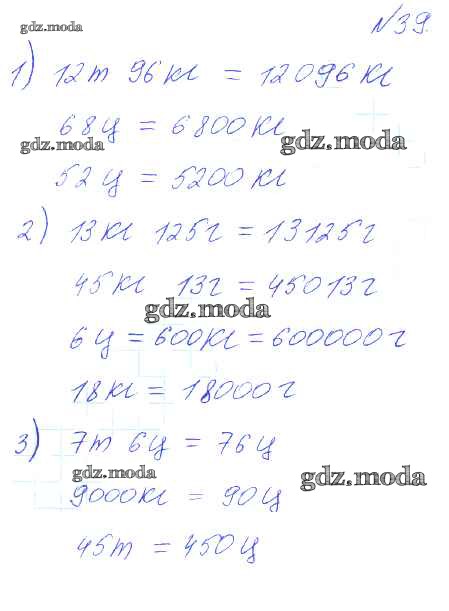 gdz.moda
№39.
1) 12т 96кг = 12096кг
68ц = 6800кг
gdz.moda
gdz.moda
52ц = 5200кг
2) 13кг 125г = 13125г
45кг 13г = 45013г
gdz.moda
6ц = 600кг = 600000г
18кг = 18000г
3) 7т 6ц = 76ц
gdz.moda
gdz.moda
9000кг = 90ц
45т = 450ц